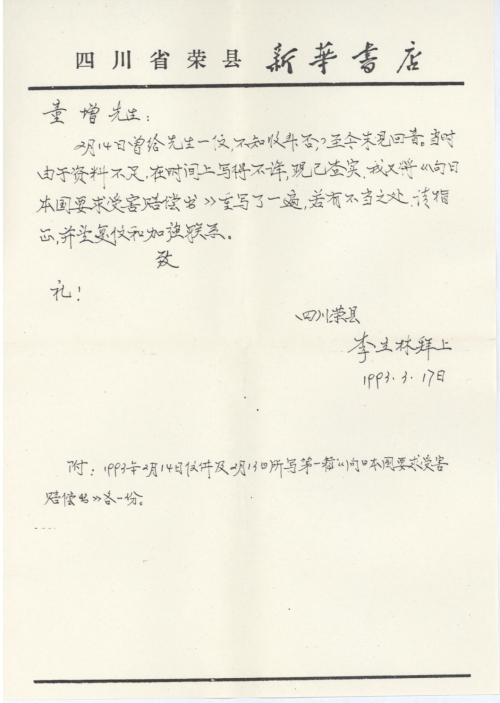 四川省荣县 新華書店
童增先生：
2月14日曾给先生一信，不知收半否？至今未见回音。当时
由于资料不足，在时间上写得不详，现已查实，我又将《向日
本国要求受害赔偿书》重写了一遍，若有不当之处，请指
正，并望复信和加强联系。
致
礼！
四川荣县
李生林拜上
1993.3.17日
附：1993年2月14日信件及2月13日所写第一稿《向日本国要求受害
赔偿书》各一份。